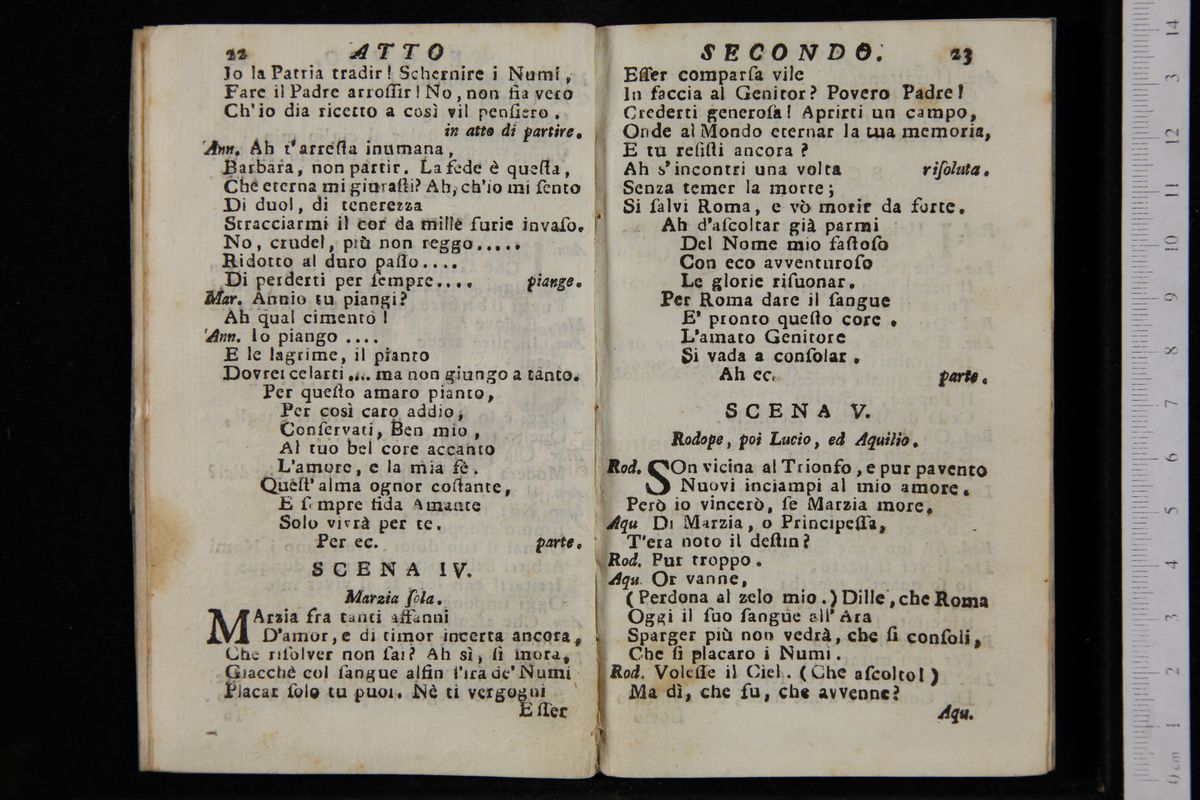 22 ATTO
Io la Patria tradir! Schernire i Numi,
Fare il Padre arroſſir! No, non fia vero
Ch'io dia ricetto a così vil penſiero.
in atto di partire.
Ann. Ah t'arreſta inumana,
Barbara, non partir. La fede è queſta,
Che eterna mi giuraſti? Ah, ch'io mi ſento
Di duol, di tenerezza
Stracciarmi il cor da mille furie invaſo.
No, crudel, più non reggo.....
Ridotto al duro paſſo....
Di perderti per ſempre.... piange.
Mar. Annio tu piangi?
Ah qual cimento!
Ann. Io piango ....
E le lagrime, il pianto
Dovrei celarti .... ma non giungo a tanto.
Per queſto amaro pianto,
Per così caro addio,
Conſervati, Ben mio,
Al tuo bel core accanto
L'amore, e la mia fè.
Queſt' alma ognor coſtante,
E ſempre fida Amante
Solo vivrà per te.
Per ec. parte.
SCENA IV.
Marzia ſola.
MArzia fra tanti affanni
D'amor, e di timor incerta ancora,
Che riſolver non ſai? Ah sì, ſi mora,
Giacchè col ſangue alfin l'ira de' Numi
Placar ſolo tu puoi. Nè ti vergogni
Eſſer
SECONDO. 23
Eſſer comparſa vile
In faccia al Genitor? Povero Padre!
Crederti generoſa! Aprirti un campo,
Onde al Mondo eternar la tua memoria,
E tu reſiſti ancora?
Ah s'incontri una volta riſoluta.
Senza temer la morte;
Si ſalvi Roma, e vò morir da forte.
Ah d'aſcoltar già parmi
Del Nome mio faſtoſo
Con eco avventuroſo
Le glorie riſuonar.
Per Roma dare il ſangue
E' pronto queſto core.
L'amato Genitore
Si vada a conſolar.
Ah ec. parte.
SCENA V.
Rodope, poi Lucio, ed Aquilio.
Rod. SOn vicina al Trionfo, e pur pavento
Nuovi inciampi al mio amore.
Però io vincerò, ſe Marzia more.
Aqu Di Marzia, o Principeſſa,
T'era noto il deſtin?
Rod. Pur troppo.
Aqu. Or vanne,
(Perdona al zelo mio.) Dille, che Roma
Oggi il ſuo ſangue all' Ara
Sparger più non vedrà, che ſi conſoli,
Che ſi placaro i Numi.
Rod. Voleſſe il Ciel. (Che aſcolto!)
Ma dì, che fu, che avvenne?
Aqu.
0 cm 1 2 3 4 5 6 7 8 9 10 11 12 13 14